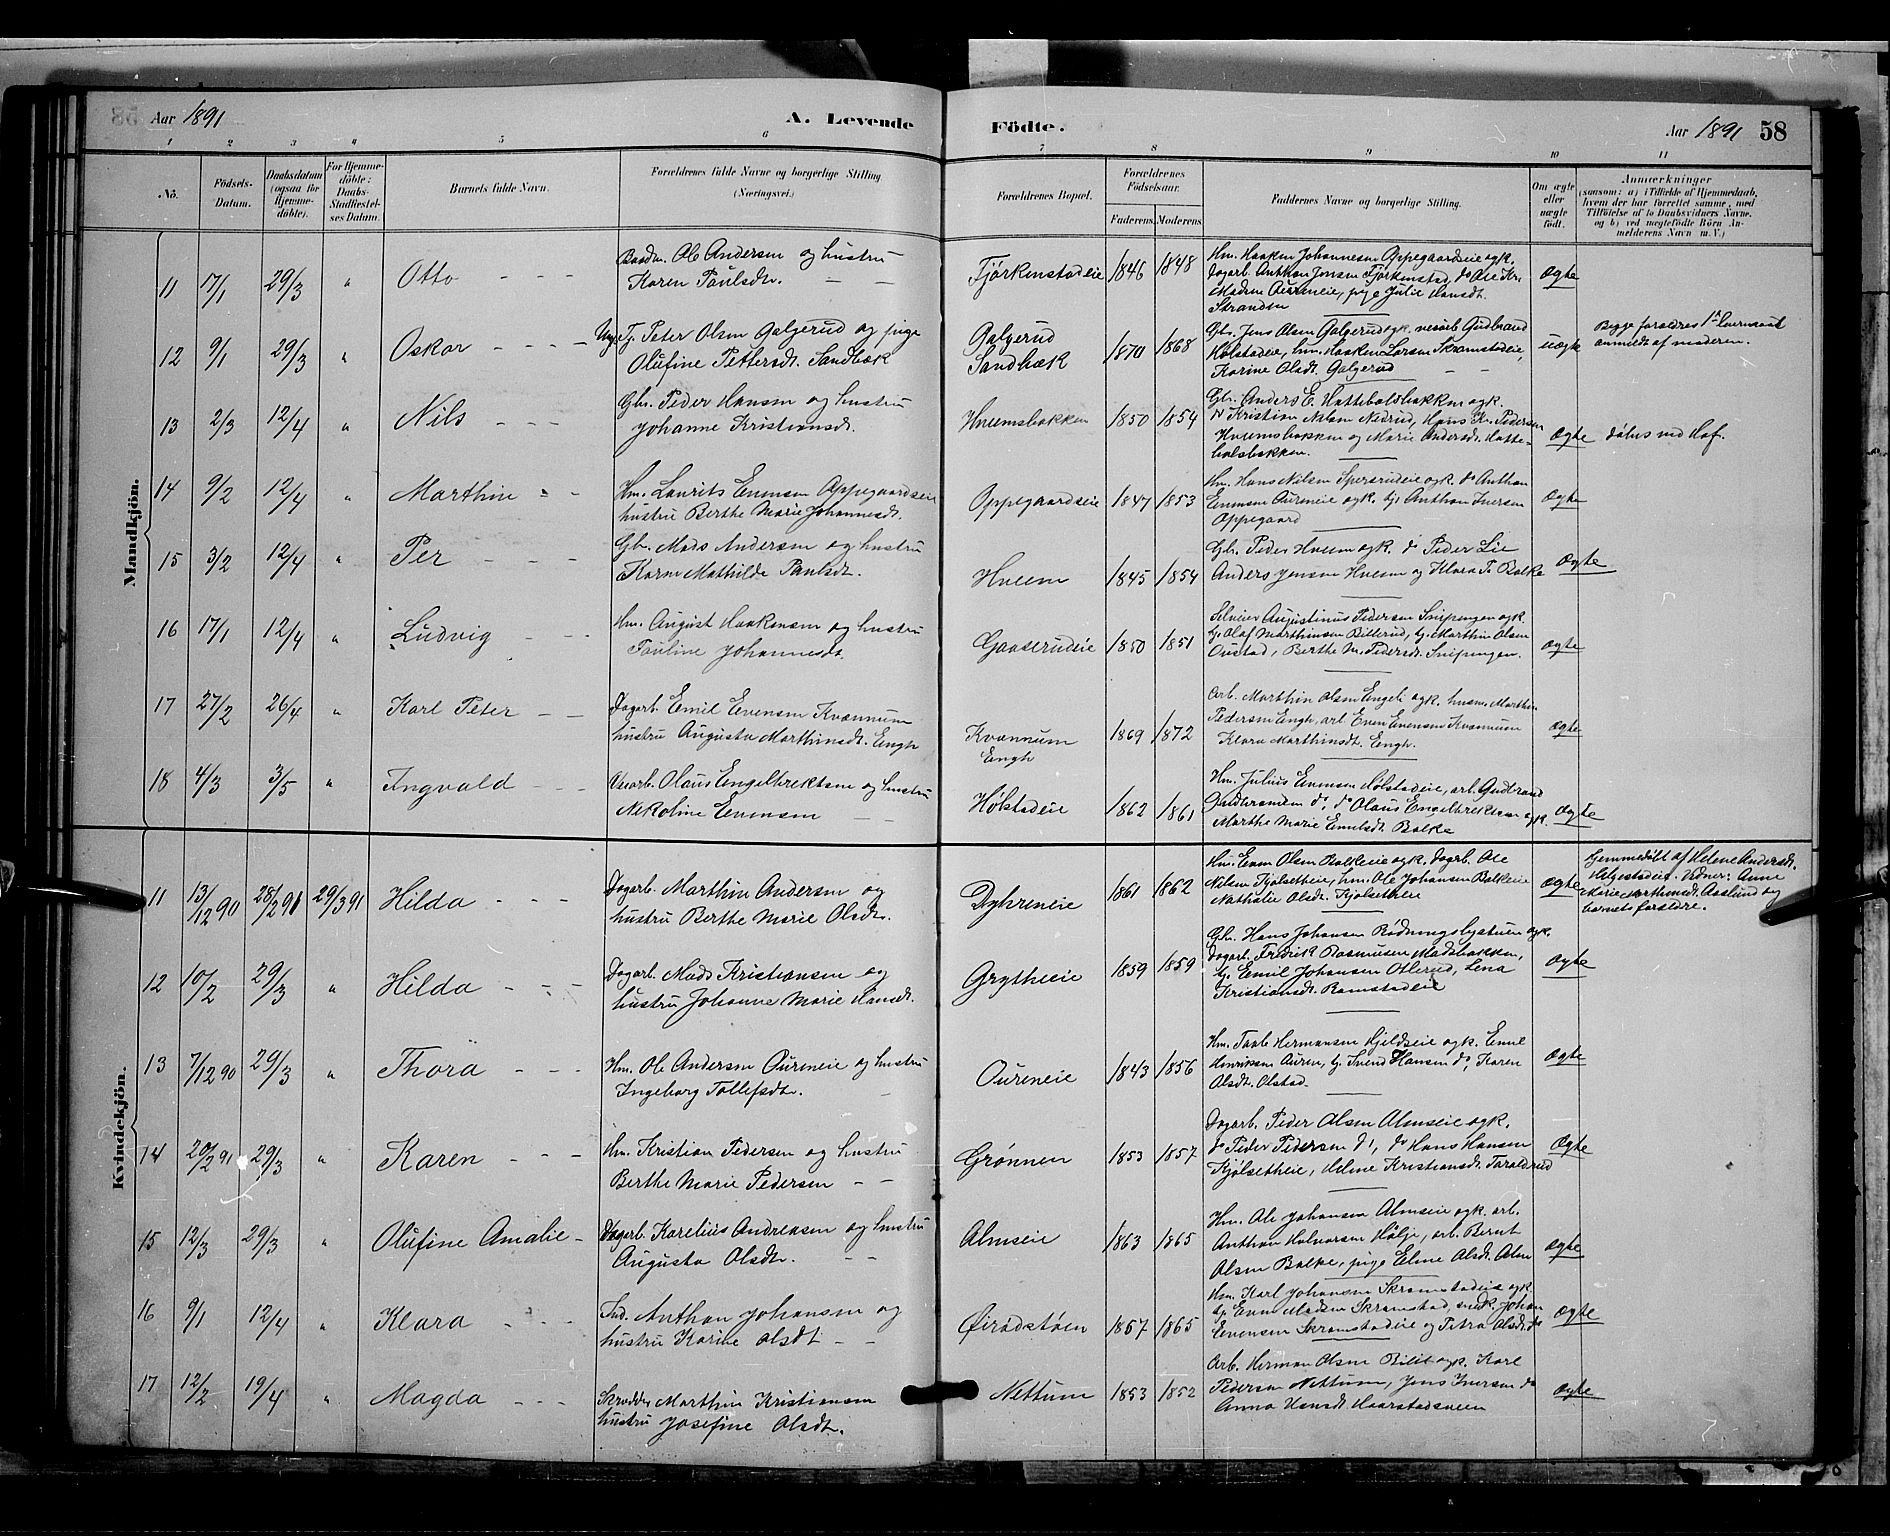 Aar 1891
A. Levende
Födte.
Aar 1891
58
1 2 3 4 5 6 7 8 9 10 11
No.
Födsels-Datum.
Daabsdatum (ogsaa for Hjemmedöbte).
For Hjemmedöbte: Daabs-Stadfæstelses Datum.
Barnets fulde Navn.
Forældrenes fulde Navne og borgerlige Stilling (Næringsvei.)
Forældrenes Bopæl.
Forældrenes Födselsaar.
Faderens. Moderens
Faddernes Navne og borgerlige Stilling.
Om ægte eller uægte födt.
Anmærkninger
(saasom: a) i Tilfælde af Hjemmedaab, hvem der har forrettet samme, med Tilföielse af to Daabsvidners Navne, og b) ved uægtefödte Börn Anmelderens Navn m. V.)
Mandkjön.
11 17/1 29/3 " Otto
Ole Andersen og hustru
Karen Paulsdt.
Fjörkenstadeie 1846 1848
Hm. Haaken Johannesen Oppegaardseie ogk.
Dagarb. Anthon Jensen Fjörkenstad, do Ole Kr.
Madsen Aureneie, pige Julie Hansdt.
Stranden
ægte
12 9/1 29/3 " Oskar
Ug. Tj. Peter Olsen Galgerud og pige
Olufine Pettersdt. Sandbæk
Galgerud
Sandbæk 1870 1868
Gbr. Jens Olsen Galgerud ogk. Gudbrand
Holstadeie, hm. Haaken Larsen Skramstadeie,
Karine Olsdt. Galgerud
uægte
Begge forældres 1ste
anmeldt af moderen.
13 2/3 12/4 " Nils
Gbr. Peder Hansen og hustru
Johanne Kristiansdt.
Hveemsbakken 1850 1854
Gbr. Anders E. Hattebolsbakken ogk.
do Kristian Nilsen Nedrud, Hans Kr. Pedersen
Hveemsbakken og Marie Andersdt. Hatte-
bolsbakken.
ægte
døbt ved Hof.
14 9/2 12/4 " Marthin
Hm. Laurits Evensen Oppegaardseie
hustru Berthe Marie Johannesdt.
Oppegaardseie 1847 1853
Hm. Hans Nilsen Spersrudeie ogk. do Anthon
Evensen Aureneie ogk. tj. Anthon Iversen
Oppegaard
ægte
15 3/2 12/4 " Per
Gbr. Mads Andersen og hustru
Karen Mathilde Paulsdt.
Hveem 1845 1854
Gbr. Peder Hveem ogk. do Peder Lie
Anders Jensen Hveem og Klara P. Balke
ægte
16 17/1 12/4 " Ludvig
Hm. August Haakensen og hustru
Pauline Johannesdt.
Gaaserudeie 1850 1851
Augustinus Pedersen Snipengen ogk.
tj. Olaf Marthinsen Billerud, tj. Marthin Olsen
Oustad, Berthe M. Pedersdt. Snipengen.
ægte
17 27/2 26/4 " Karl Peter
Dagarb. Emil Evensen Kvannum
hustru Augusta Marthinsdt. Engh
Kvannum
Engh 1869 1872
Arb. Marthin Olsen Engh ogk. husm. Marthin
Pedersen Engh, arb. Even Evensen Kvannum
Klara Marthinsdt. Engh.
ægte
18 4/3 3/5 " Ingvald
Olaus Engelbrektsen og hustru
Nikoline Evensen
Hølstadeie 1862 1861
Hm. Julius Evensen Hølstadeie, arb. Gudbrand
Gudbrandsen do, do Olaus Engelbrektsen ogk.
Marthe Marie Emilsdt. Balke
ægte
Kvindekjön.
11 13/12 90 28/2 91 29/3 91 Hilda
Dagarb. Marthin Andersen og
hustru Berthe Marie Olsdt.
Dyhreneie 1861 1862
Hm. Even Olsen Balkeie ogk. Dagarb. Ole
Nilsen Kjølsetheie, hm. Ole Johansen Balkeie
Nathalie Olsdt. Kjølsetheie
ægte
Hjemmedøbt af Helene Andersdt.
Helgestadeie. Vidner: Anne
Marie Aaslund og
barnets forældre.
12 10/2 29/3 " Hilda
Dagarb. Mads Kristiansen og
hustru Johanne Marie Hansdt.
Grytheeie 1859 1859
Gbr. Hans Johansen Rødningsbystuen ogk.
Dagarb. Fredrik Rasmusen Madsbakken,
tj. Emil Johansen Otterud, Lena
Kristiansdt. Ramstadeie
ægte
13 7/12 90 29/3 " Thora
Hm. Ole Andersen Oureneie og hustru
Ingeborg Tollefsdt.
Oureneie 1843 1856
Hm. Hermansen Gjeldseie ogk. Emil
Henriksen Auren, tj. Svend Hansen do, Karen
Olsdt. Olstad.
ægte
14 20/2 91 29/3 " Karen
Hm. Kristian Pedersen og hustru
Berthe Marie Pedersen
Grønnen 1853 1857
Dagarb. Peder Olsen Almseie ogk.
do Peder Pedersen do, do Hans Hansen
Kjølsetheie, Helene Kristiansdt. Taralderud
ægte
15 12/3 29/3 " Olufine Amalie
Dagarb. Karelius Andreasen og hustru
Augusta Olsdt.
Almseie 1863 1865
Hm. Ole Johansen Almseie ogk. arb.
Anthon Halvorsen Hølje, arb. Bernt
Olsen Balke, pige Eline Olsdt. Alm
ægte
16 9/1 12/4 " Klara
Ind. Anthon Johansen og
hustru Karine Olsdt
Øiradstøen 1857 1865
Hm. Karl Johansen Skramstadeie ogk.
tj. Even Madsen Skramstad, Johan
Evensen Skramstadeie og Petra Olsdt. do
ægte
17 12/2 19/4 " Magda
Skrædder Marthin Kristiansen
hustru Josefine Olsdt.
Nettum 1853 1852
Arb. Herman Olsen Bilit ogk. Karl
Pedersen Nettum, Jens Iversen do
Anna Hansdt. Haarstadsveen
ægte